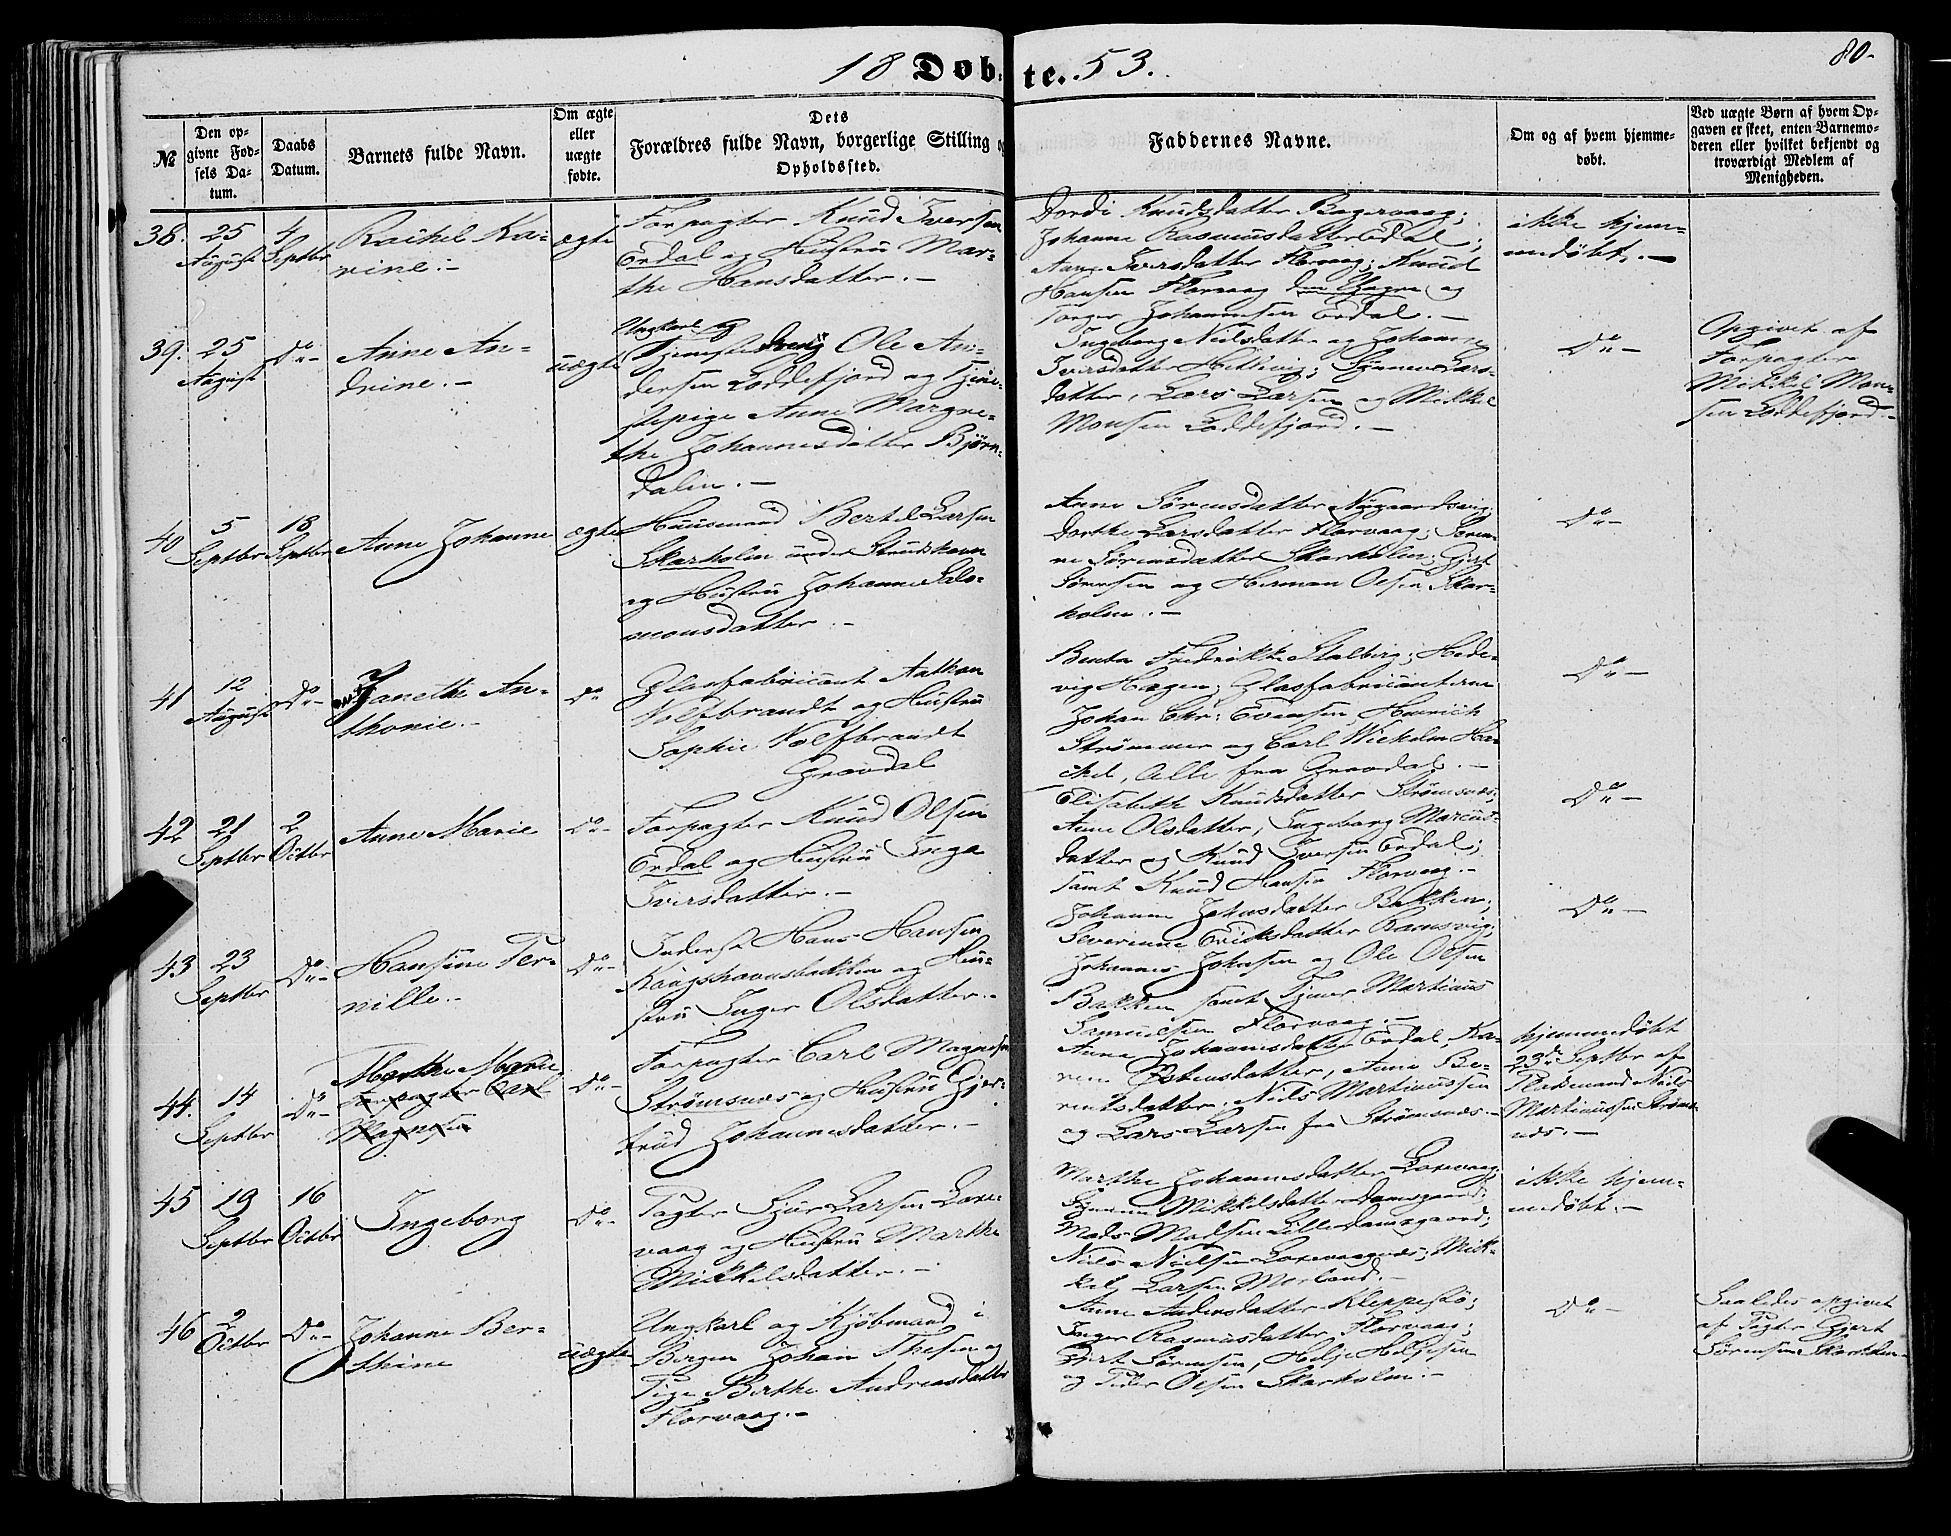 18 Døbte. 53.
80.
№
Den opgivne Fødsels Datum.
Daabs Datum.
Barnets fulde Navn.
Om ægte eller uægte fødte.
Dets Forældres fulde Navn, borgerlige Stilling og Opholdssted.
Faddernes Navne.
Om og af hvem hjemmedøbt.
Ved uægte Børn af hvem Opgaven er skeet, enten Barnemoderen eller hvilket bekjendt og troværdigt Medlem af Menigheden.
38. 25 August 4 Septbr
Rachel Karine.-
ægte
Forpagter Knud Iversen
Erdal og Hustru Marthe Hansdatter.-
Dordi Knudsdatter
Johanne Rasmusdatter Erdal;
Anne Iversdatter Florvaag; Knud
Hansen Florvaag den Yngre og
Torger Johannesen Erdal.-
ikke hjemmedøbt.-
39. 25 August Do-
Anne Andrine.-
uægte
Ungkarl og
Tjenestedreng Ole Andersen Loddefjord og Tjenestepige Anne Margrethe Johannesdatter Bjørndalen.-
Ingeborg Nielsdatter og Johanne
Iversdatter Hillevig; Synneve Larsdatter, Lars Larsen og Mikkel
Monsen Loddefjord.-
Do-
Opgivet af
Forpagter
Mikkel Monsen Loddefjord.-
40 5 Septbr 18 Septbr
Anne Johanne
ægte
Huusmand Bertel Larsen
Skarholm under Strudshavn
og Hustru Johanne Salomonsdatter.-
Anne Sørensdatter
Dorthe Larsdatter Florvaag; Sørine Sørensdatter Skarholm; Gjert
Sørensen og Herman Olsen Skarholm.-
Do-
41 12 August Do-
Janette Anthonie.-
Do
Glasfabricant Anthon
Wolfbrandt og Hustru
Sophie Wolfbrandt
Gravdal
Benta Fredrikke Stalberg; Hedevig Hagen; Glasfabricanterne
Johan Chr. Evensen, Henrich
Strømmer og Carl Wilhelm
Alle fra Gravdal.-
Do-
42 21 Septbr 2 Octbr
Anne Marie
Do-
Forpagter Knud Olsen
Erdal og Hustru Inga
Iversdatter.-
Elisabeth Knudsdatter Strømsnæs;
Anne Olsdatter, Ingeborg Marcusdatter og Knud Iversen Erdal;
samt Knud Hansen Florvaag.-
Do-
43 23 Septbr Do-
Hansine Pernille.-
Do-
Inderst Hans Hansen
Kongshavnsbakken og Hustru Inger Olsdatter.-
Johanne Johnsdatter Bakken;
Severinne Eriksdatter Ramsvig;
Johannes Johnsen og Ole Olsen
Bakken samt Tjener Martinus
Samuelsen Florvaag.-
Do-
44. 14 Septbr Do-
Marthe Marie
Forpagter Carl
Magnesen
Do-
Forpagter Carl Magnesen
Strømsnæs og Hustru Gjertrud Johannesdatter.-
Anne Johannesdatter Erdal, Karen Østensdatter, Anne Berentsdatter. Niels Martinussen
og Lars Larsen fra Strømsnæs.-
hjemmedøbt
23de Septbr af
Niels
Martinussen Strømsnæs.-
45 19 Septbr 16 Octbr
Ingeborg
Do-
Pagter Sjur Larsen
og Hustru Marthe
Mikkelsdatter.-
Marthe Johannesdatter
Mikkelsdatter Damsgaard;
Mads Madsen Lille Damsgaard;
Niels Nielsen; Mikkel Larsen
ikke hjemmedøbt.-
46 2 Octbr Do-
Johanne Berthine
uægte
Ungkarl og Kjøbmand i
Bergen Johan Thesen og
Pige Birthe Andreasdatter
Florvaag.-
Anne Andersdatter Kleppestø;
Inger Rasmusdatter, Florvaag;
Gjert Sørensen, Helje Heljesen
og Peder Olsen Skarholm.-
Do-
Saaledes opgivet
af Pagter Gjert
Sørensen Skarholm.-